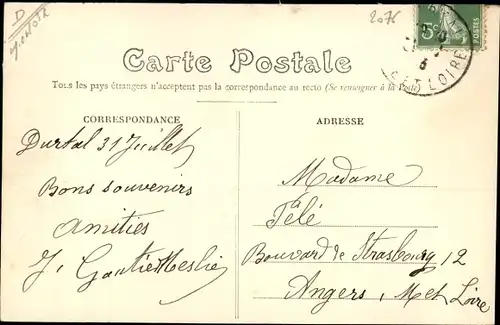 D
2076
5c
POSTES
ET LOIRE
Carte Postale
Tous les pays étrangers n'acceptent pas la correspondance au recto (Se renseigner à la Poste)
CORRESPONDANCE
Durtal 31 Juillet
Bons souvenirs
amitiés
ADRESSE
Madame
Télé
Bouvard de Strasbourg 12
Angers, M et Loire